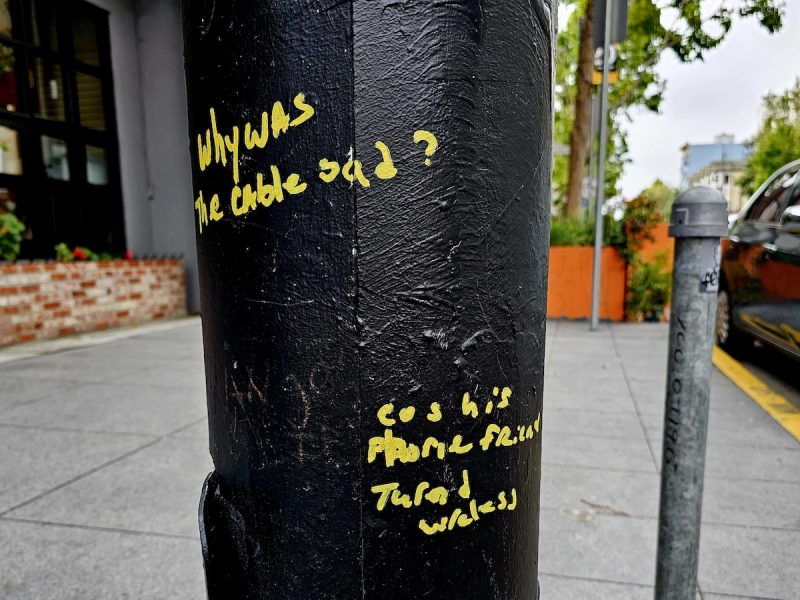 Why was
The cable sad?
cos his
Phone friend
Turnd
wireless